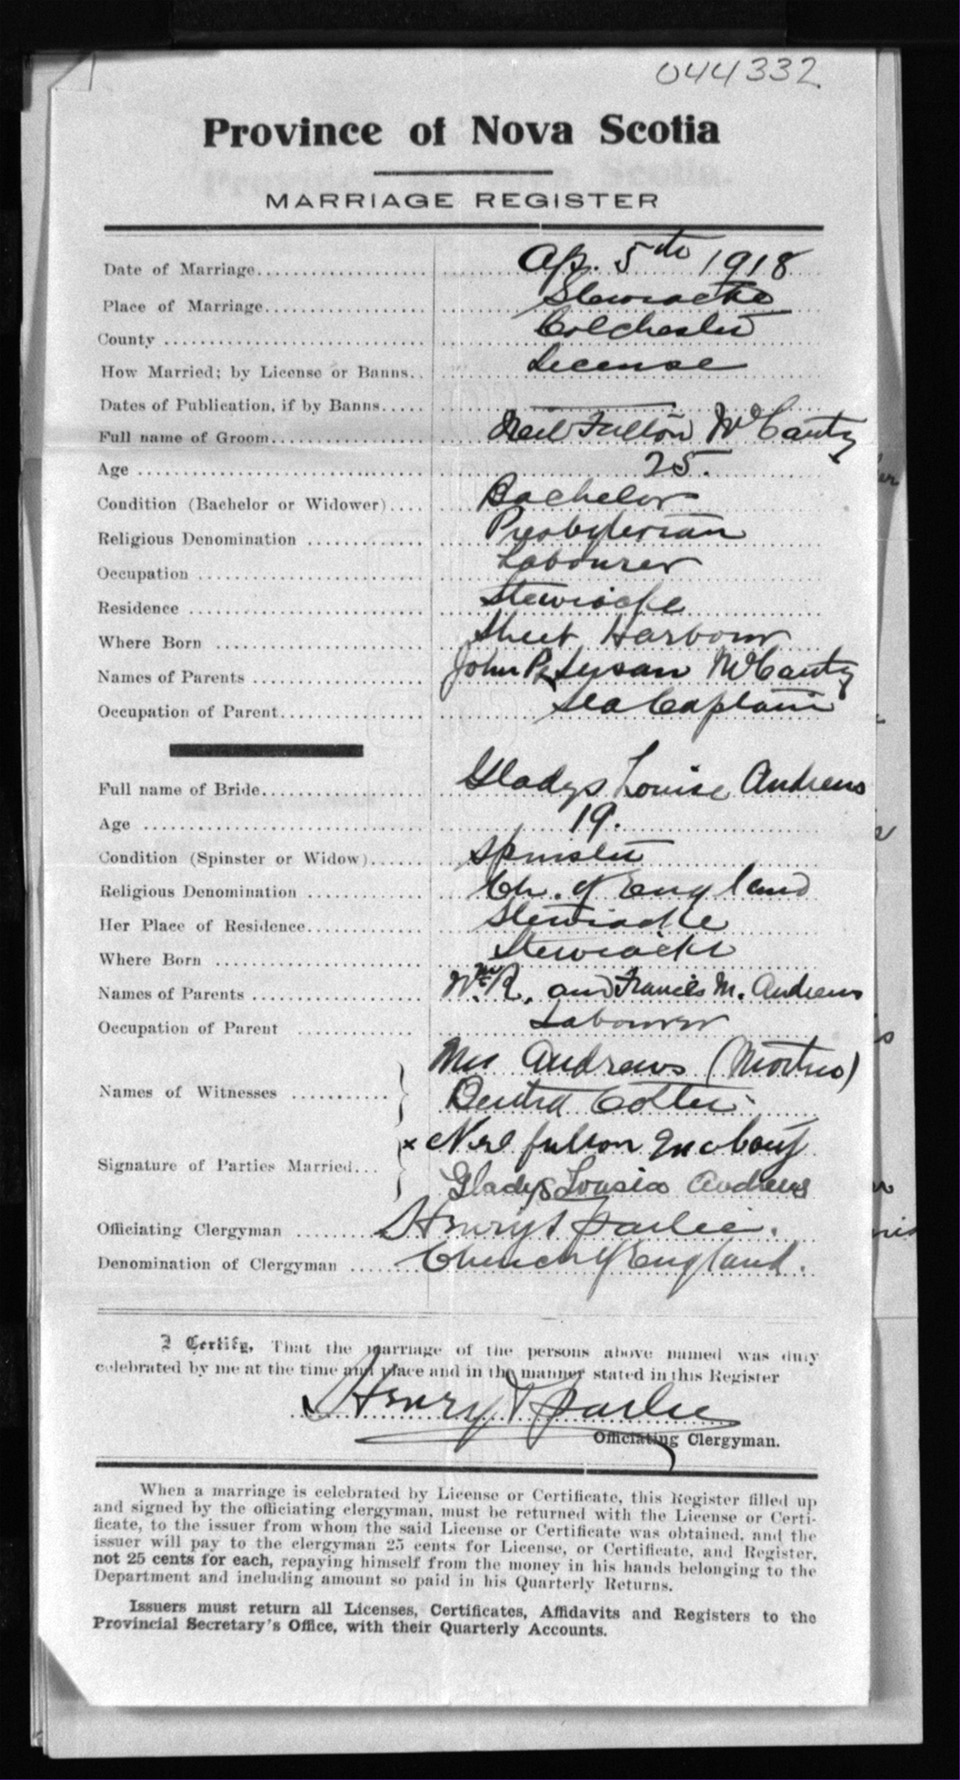 044332
Province of Nova Scotia
MARRIAGE REGISTER
Date of Marriage Ap. 5th 1918
Place of Marriage Stewiacke
County Colchester
How Married; by License or Banns License
Dates of Publication, if by Banns
Full name of Groom Neil Fulton McCarty
Age 25.
Condition (Bachelor or Widower) Bachelor
Religious Denomination Presbyterian
Occupation Labourer
Residence Stewiacke
Where Born Sheet Harbour
Names of Parents John P. Susan McCarty
Occupation of Parent Sea Captain
Full name of Bride Gladys Louise Andrews
Age 19.
Condition (Spinster or Widow) Spinster
Religious Denomination Ch. of England
Her Place of Residence Stewiacke
Where Born Stewiacke
Names of Parents Wm R. and Francis M. Andrews
Occupation of Parent Labourer
Names of Witnesses Mrs Andrews (Mother)
Bertha
Signature of Parties Married x Neil fulton
Gladys Andrews
Officiating Clergyman Henry
Denomination of Clergyman Church of England.
I Certify, That the marriage of the persons above named was duly
celebrated by me at the time and place and in the manner stated in this Register
Henry
Officiating Clergyman.
When a marriage is celebrated by License or Certificate, this Register filled up
and signed by the officiating clergyman, must be returned with the License or Certi-
ficate, to the issuer from whom the said License or Certificate was obtained, and the
issuer will pay to the clergyman 25 cents for License, or Certificate, and Register,
not 25 cents for each, repaying himself from the money in his hands belonging to the
Department and including amount so paid in his Quarterly Returns.
Issuers must return all Licenses, Certificates, Affidavits and Registers to the
Provincial Secretary's Office, with their Quarterly Accounts.